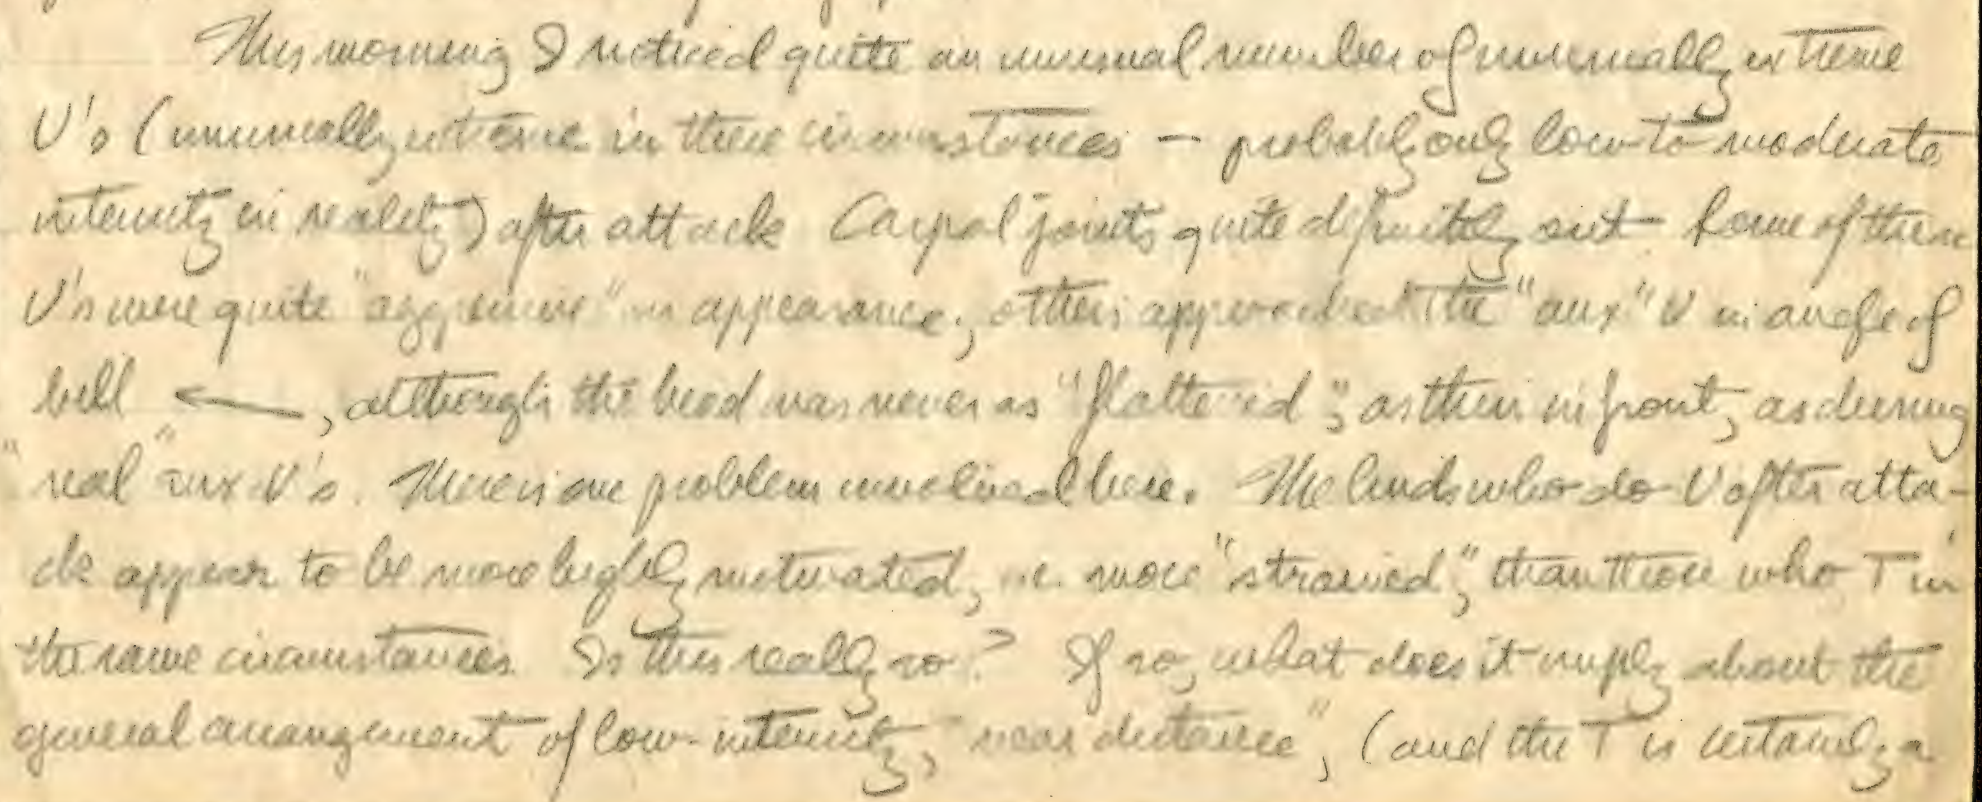 This morning I noticed quite an unusual number of unusually extreme
U's (unusually extreme in these circumstances — probably only low to moderate
intensity in reality) after attack Carpal joints quite definitely out Some of these
U's were quite "aggressive" in appearance, others approached the "aux" U in angle of
bill ←, although the head was never as "flattened", as thin in front, as during
"real" aux U's. There is one problem involved here. The birds who do U after atta-
ck appear to be more highly motivated, i.e. more "strained", than those who T in
the same circumstances. Is this really so? If so, what does it imply about the
general arrangement of low-intensity, "near distance", (and the T is certainly a